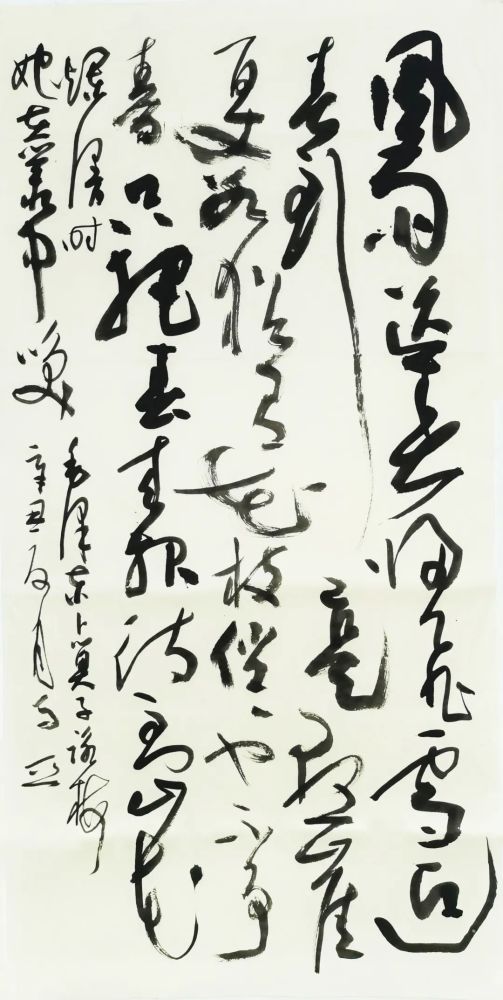 風雨送春归飛雪迎
春到已是悬崖
百丈冰犹有花枝俏々也不争
春只把春来报待到山花
烂漫时
她在叢中笑
毛泽东卜算子詠梅
辛丑夏月